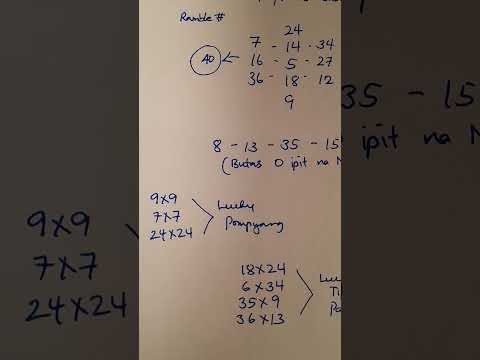 Ramble #
24
7 - 14 - 34
40 ← 16 - 5 - 27
36 - 18 - 12
9
8 - 13 - 35 - 15
(Butas O ipit na N
9x9
7x7
24x24
Lucky
Pompyang
18x24
6x34
35x9
36x13
35 - 15
ipit na N
9x9
7x7
24x24